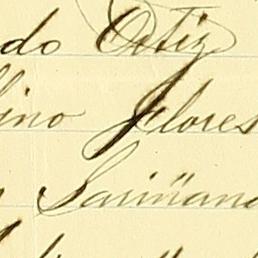 do Ortiz
lino Flores
Sariñana